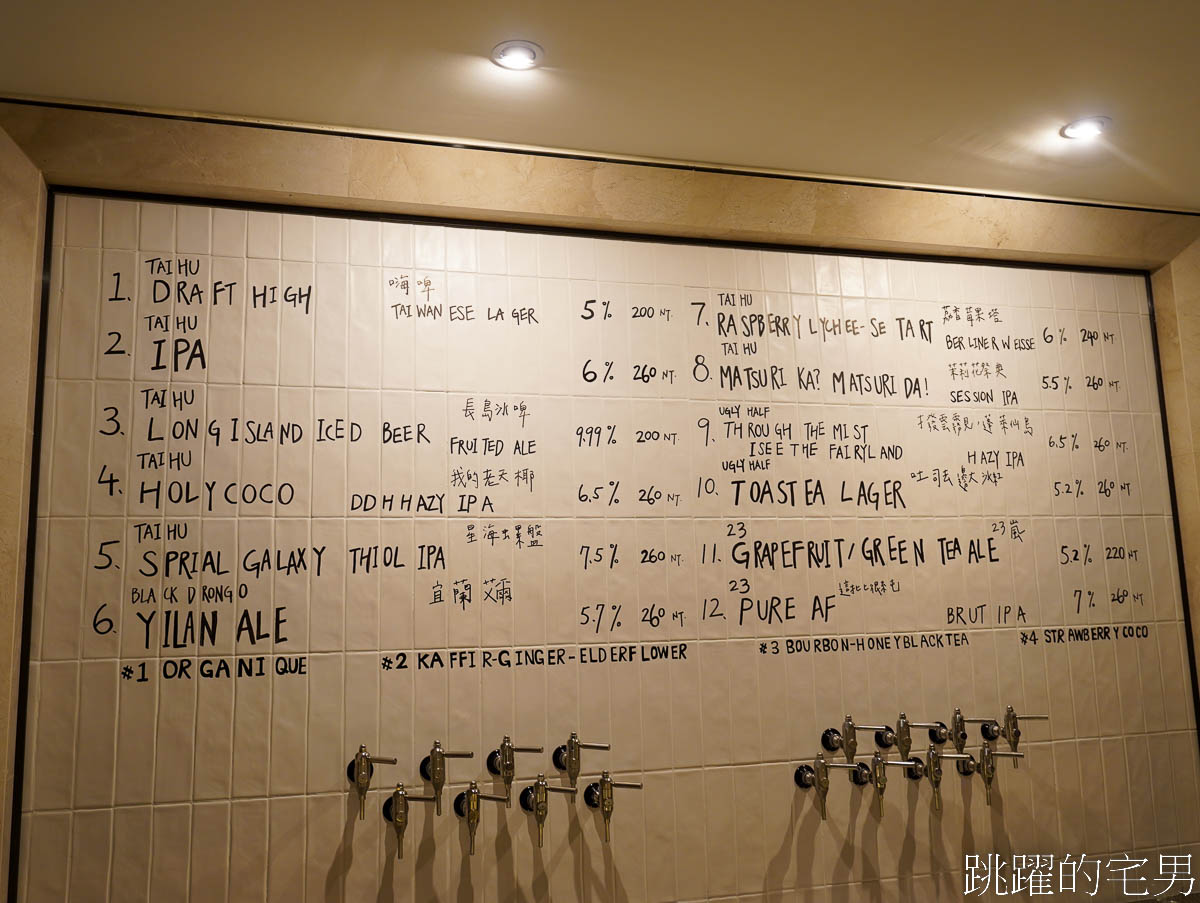 TAIHU
1. DRAFT HIGH 嗨啤 TAIWANESE LAGER 5% 200 NT.
TAIHU
2. IPA 6% 260 NT.
TAIHU
3. LONG ISLAND ICED BEER 長島冰啤 FRUITED ALE 9.99% 200 NT.
TAIHU
4. HOLY COCO 我的老天椰 DDH HAZY IPA 6.5% 260 NT.
TAIHU
5. SPRIAL GALAXY THIOL IPA 星海螺盤 7.5% 260 NT.
BLACK DRONGO
6. YILAN ALE 宜蘭艾爾 5.7% 260 NT.
TAIHU
7. RASPBERRY LYCHEE-SE TART 荔香莓果塔 BERLINER WEISSE 6% 240 NT.
TAIHU
8. MATSURI KA? MATSURI DA! SESSION IPA 5.5% 260 NT.
UGLY HALF
9. THROUGH THE MIST
I SEE THE FAIRYLAND HAZY IPA 6.5% 260 NT.
UGLY HALF
10. TOASTEA LAGER 吐司去邊大冰紅 5.2% 260 NT
23
11. GRAPEFRUIT/GREEN TEA ALE 23歲 5.2% 220 NT
23
12. PURE AF BRUT IPA 7% 260 NT.
#1 ORGANIQUE #2 KAFFIR-GINGER-ELDERFLOWER #3 BOURBON-HONEYBLACKTEA #4 STRAWBERRY COCO
跳躍的宅男